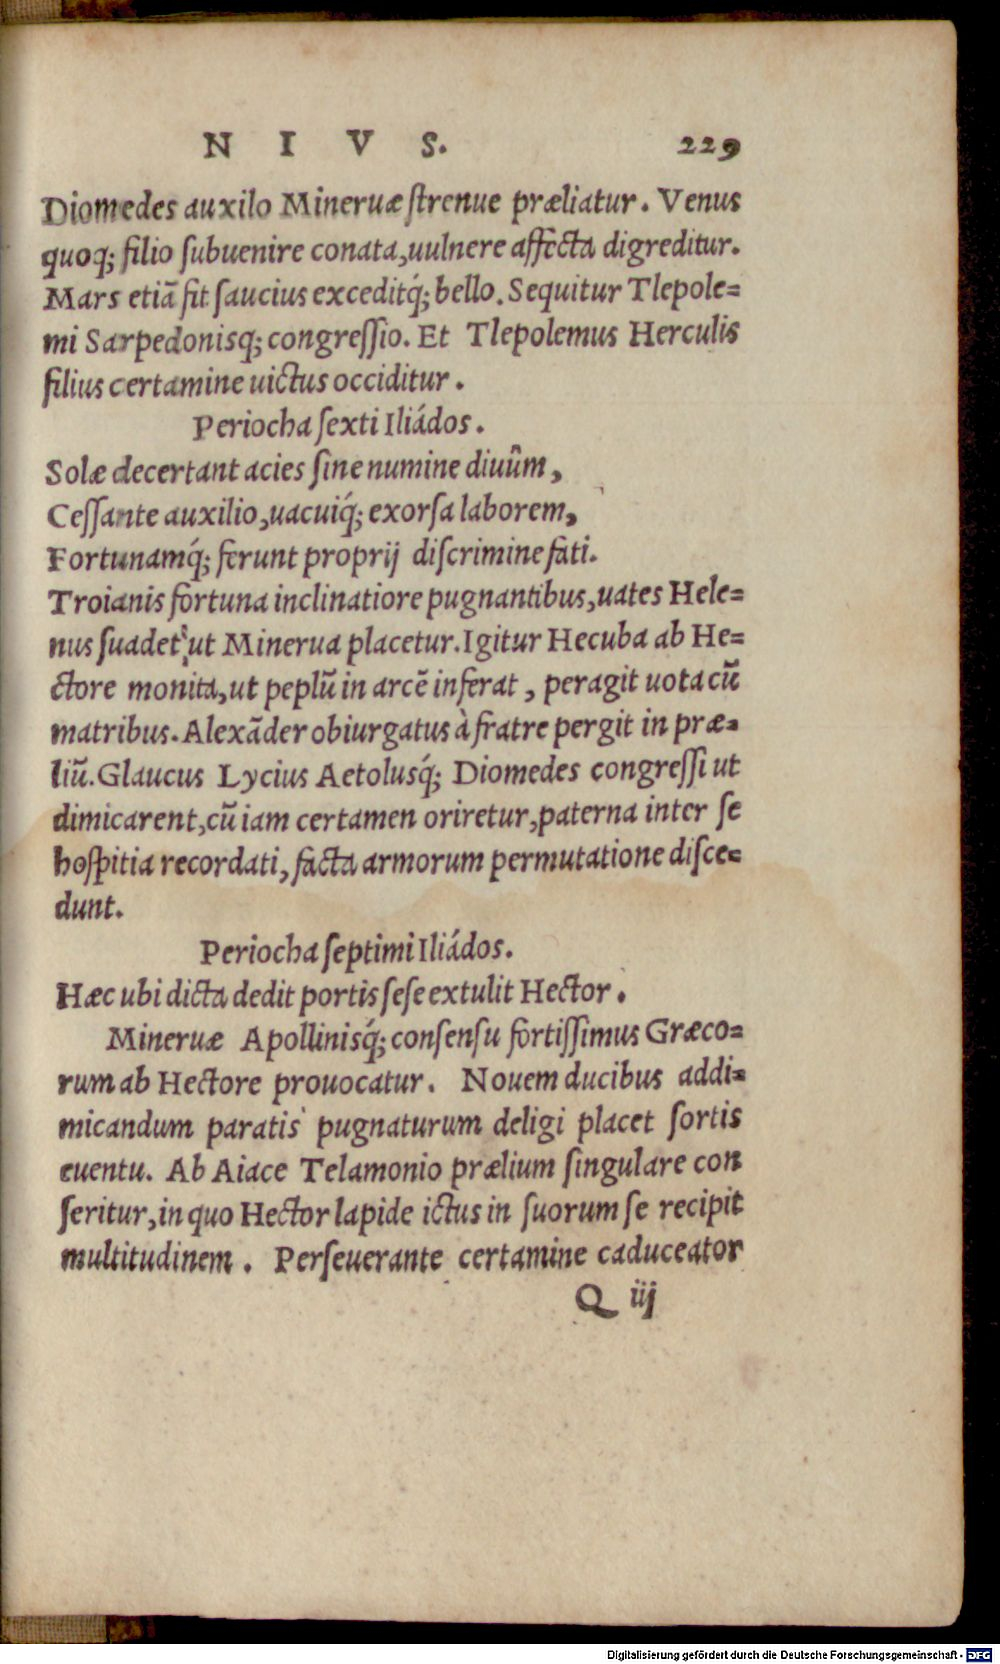 N I V S. 229
Diomedes auxilo Mineruæ ſtrenue præliatur. Venus
quoq; filio ſubuenire conata,uulnere affecta digreditur.
Mars etiā fit ſaucius exceditq́; bello. Sequitur Tlepole=
mi Sarpedonisq; congreſſio. Et Tlepolemus Herculis
filius certamine uictus occiditur.
Periocha ſexti Iliádos.
Solæ decertant acies ſine numine diuûm,
Ceſſante auxilio,uacuiq́; exorſa laborem,
Fortunamq́; ferunt proprij diſcrimine fati.
Troianis fortuna inclinatiore pugnantibus,uates Hele=
nus ſuadet ut Minerua placetur. Igitur Hecuba ab He=
ctore monita,ut peplũ in arcē inferat, peragit uota cũ
matribus. Alexāder obiurgatus à fratre pergit in præ=
liũ. Glaucus Lycius Aetolusq́; Diomedes congreſſi ut
dimicarent,cũ iam certamen oriretur,paterna inter ſe
hoſpitia recordati, facta armorum permutatione diſce=
dunt.
Periocha ſeptimi Iliádos.
Hæc ubi dicta dedit portis ſeſe extulit Hector.
Mineruæ Apollinisq́; conſenſu fortiſſimus Græco=
rum ab Hectore prouocatur. Nouem ducibus addi=
micandum paratis pugnaturum deligi placet ſortis
euentu. Ab Aiace Telamonio prælium ſingulare con
ſeritur,in quo Hector lapide ictus in ſuorum ſe recipit
multitudinem. Perſeuerante certamine caduceator
Q iij
Digitalisierung gefördert durch die Deutsche Forschungsgemeinschaft - DFG